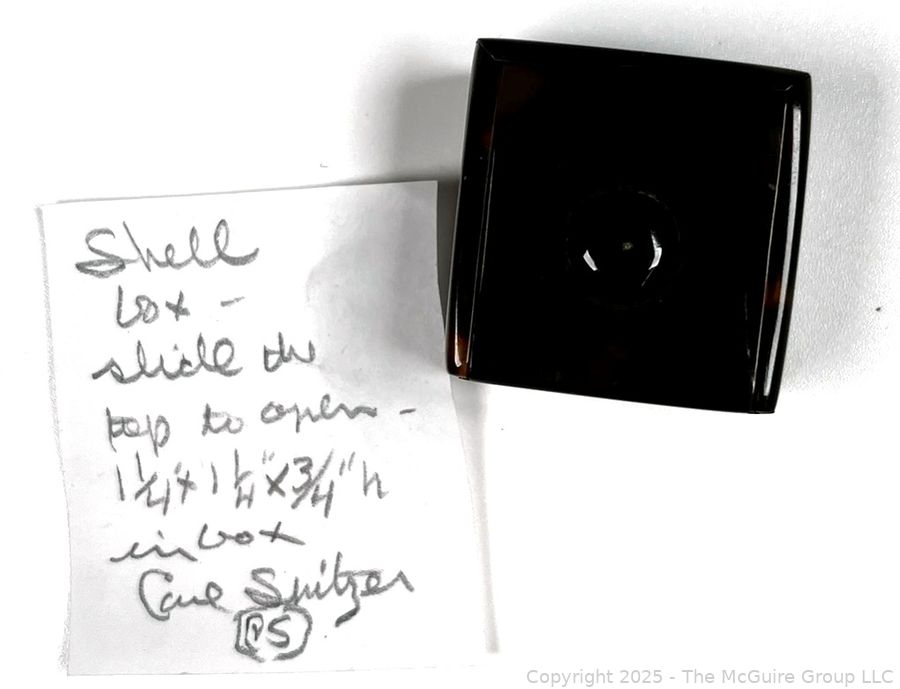 Shell
box -
slide the
top to open -
1 1/4" x 1 1/4" x 3/4" h
in box
Spitzer
Copyright 2025 - The McGuire Group LLC